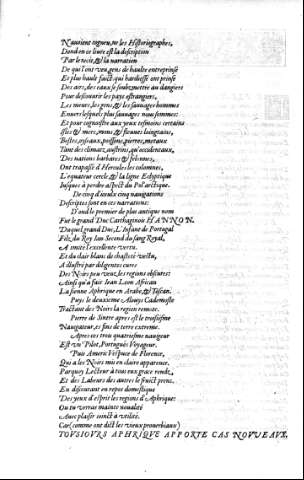 N'auoient cogneu, ne les Historiographes,
Dond en ce liure est la description
Par le recit, & la narration
De qui l'ont veu, gens de haulte entreprinse
Et plus hault faict: qui hardiesse ont prinse
Des aërs, des eaux se soubzmettre au dangier
Pour descouurir les pays estrangiers,
Les meurs, les gens, & les sauuages hommes
Enuers lesquelz plus sauuages nous sommes:
Et pour cognoistre aux yeux tesmoins certains
Isles & mers, monts & fleuues loingtains,
Bestes, oyseaux, poissons, pierres, metaux
Tant des climatz, austrins, qu'occidentaux,
Des nations barbares & felonnes,
Ont trapassé d'Hercules les colonnes,
L'equateur cercle, & la ligne Ecliptique
Iusques à perdre aspect du Pol arctique.
De cinq d'iceux cinq nauigations
Descriptes sont en ces narrations:
D'ond le premier de plus antique nom
Fut le grand Duc Carthaginois HANNON.
Duquel grand Duc, L'Infane de Portugal
Filz, du Roy Ian Second du sang Royal,
A imité l'excellente vertu.
Et du clair blanc de chasteté vestu,
A illustré par diligentes cures
Des Noirs peu veuz, les regions obscures:
Ainsi qu'a fait Iean Leon African
La sienne Aphrique en Arabe, & Tuscan.
Puys le deuxieme Alouys Cademoste
Tractant des Noirs la region remote.
Pierre de Sintre apres est le troysiesme
Nauigateur, es fins de terre extreme.
Apres ces trois quatriesme nauigeur
Est un Pilot, Portugués Voyageur.
Puis Americ Vespuce de Florence,
Qui a les Noirs mis en claire apparence.
Parquoy Lecteur à tous eux grace rendz,
Et des Labeurs des autres le fruict prens.
En discourant en repos domestique
Des yeux d'esprit les regions d'Aphrique:
Ou tu verras mainte nouualté
Auec plaisir conioct à vtilité.
Car (comme ont dict les vieux prouerbiaux)
TOVSIOVRS APHRIQVE APPORTE CAS NOVVEAVX.